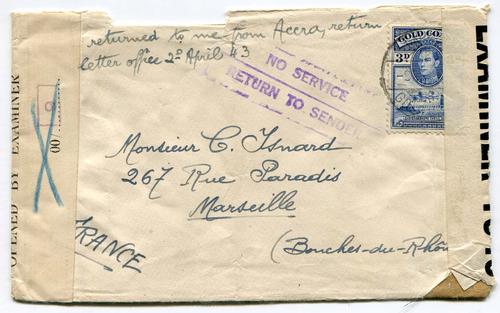 returned to me from Accra, return
letter office 2d April 43
NO SERVICE
RETURN TO SENDER
GOLD COAST
3D
Monsieur C. Isnard
267 Rue Paradis
Marseille
(Bouches-du-Rhôn
FRANCE
OPENED BY EXAMINER
EXAMINER